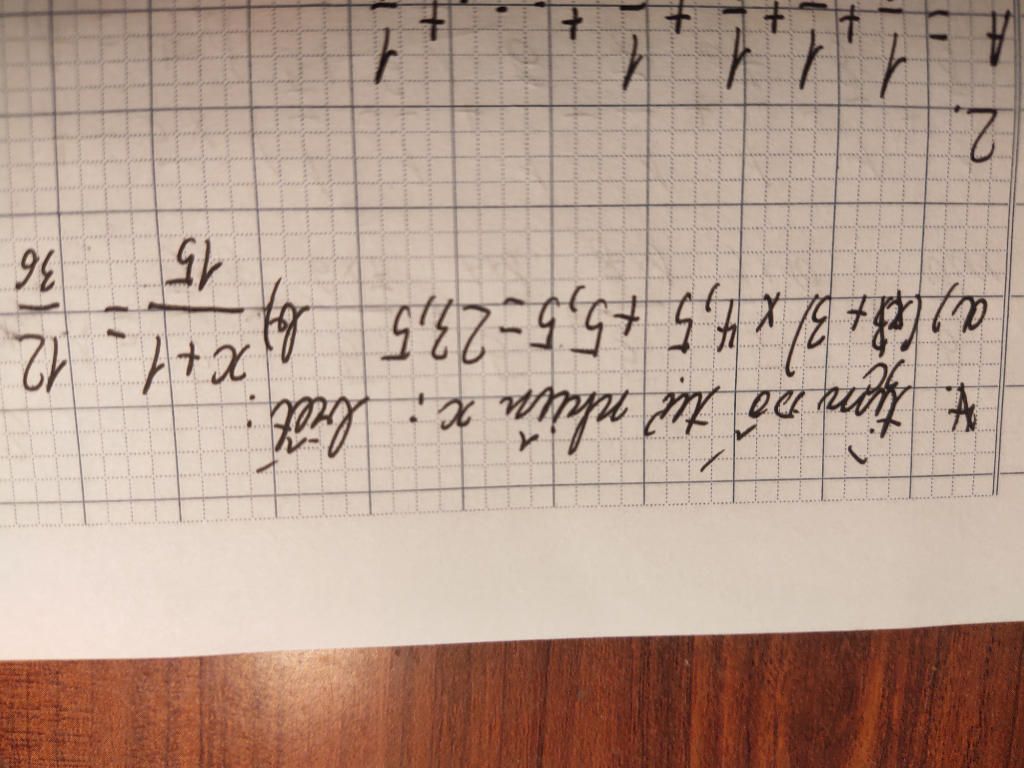 1. Tìm số tự nhiên x: biết:
a, (x + 3) x 4,5 + 5,5 = 23,5 b, x + 1 / 15 = 12 / 36
2.
A = 1 + 1 + 1 + 1 + ... + 1